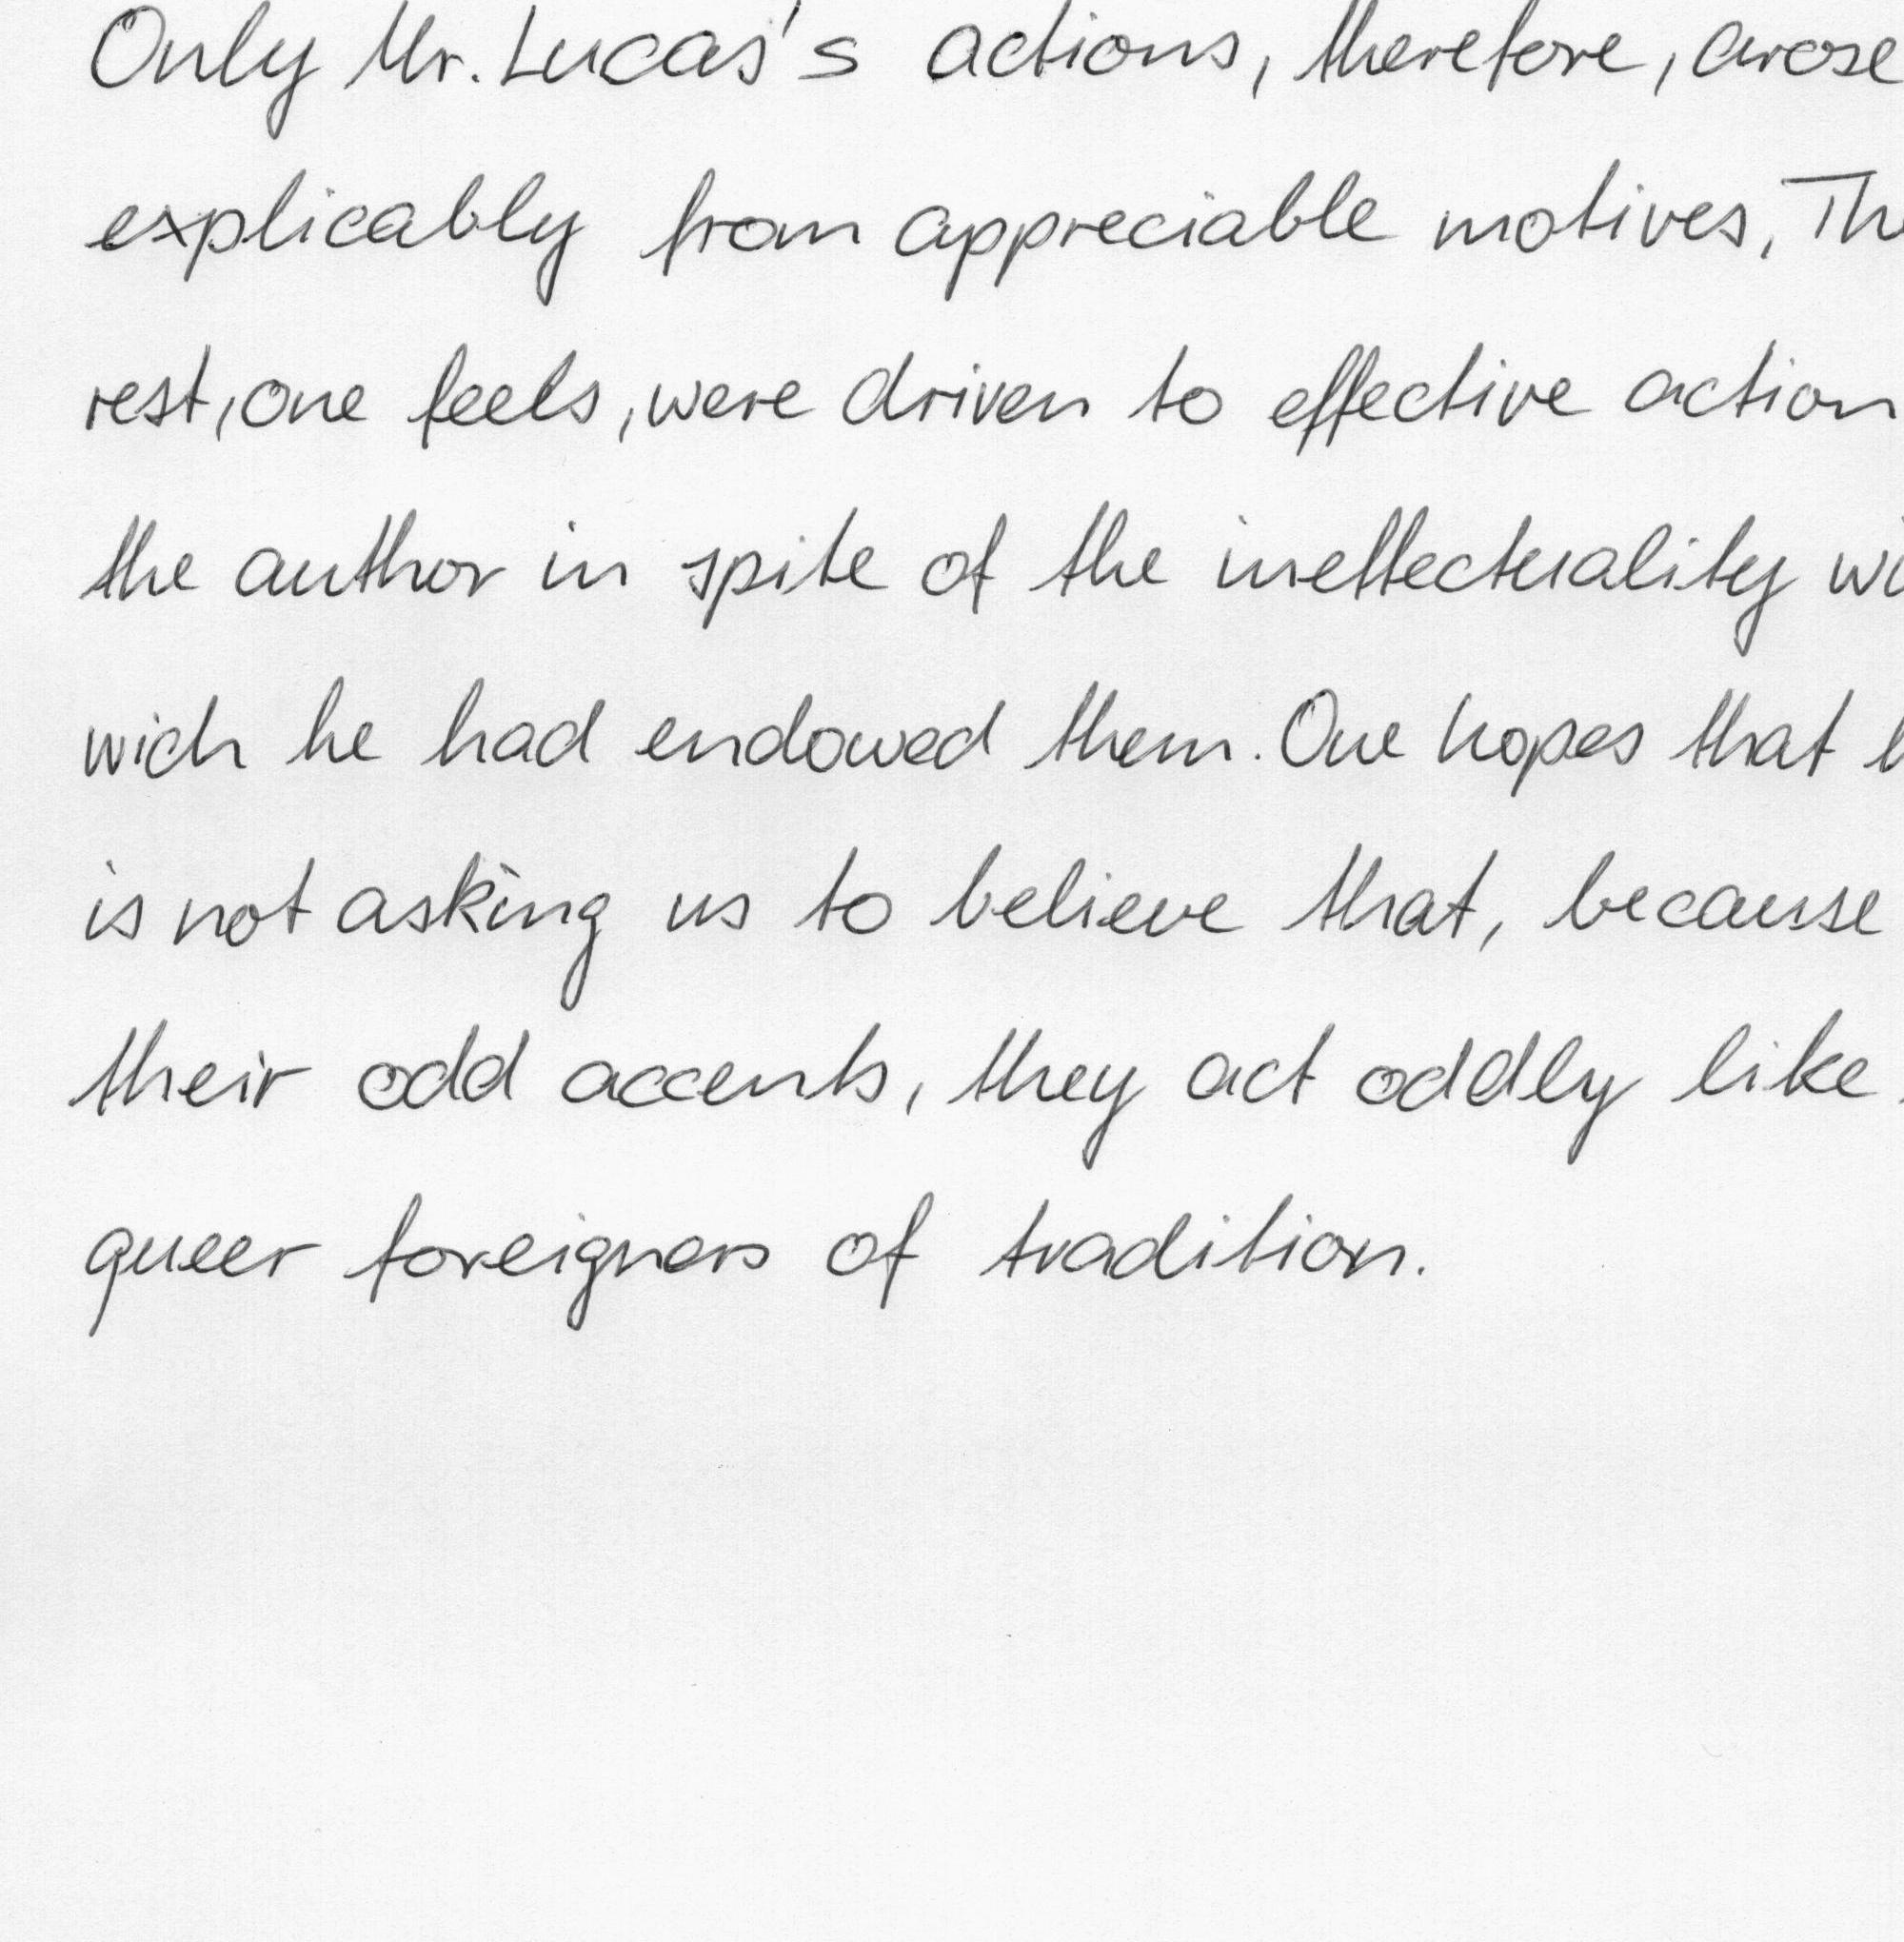 Only Mr. Lucas's actions, therefore, arose
explicably from appreciable motives, The
rest, one feels, were driven to effective action
the author in spite of the ineffectuality
wich he had endowed them. One hopes that
is not asking us to believe that, because
their odd accents, they act oddly like
queer foreigners of tradition.